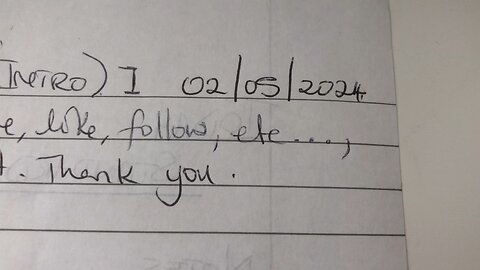 INTRO) I 02/05/2024
, like, follow, etc...,
. Thank you.
NOTES